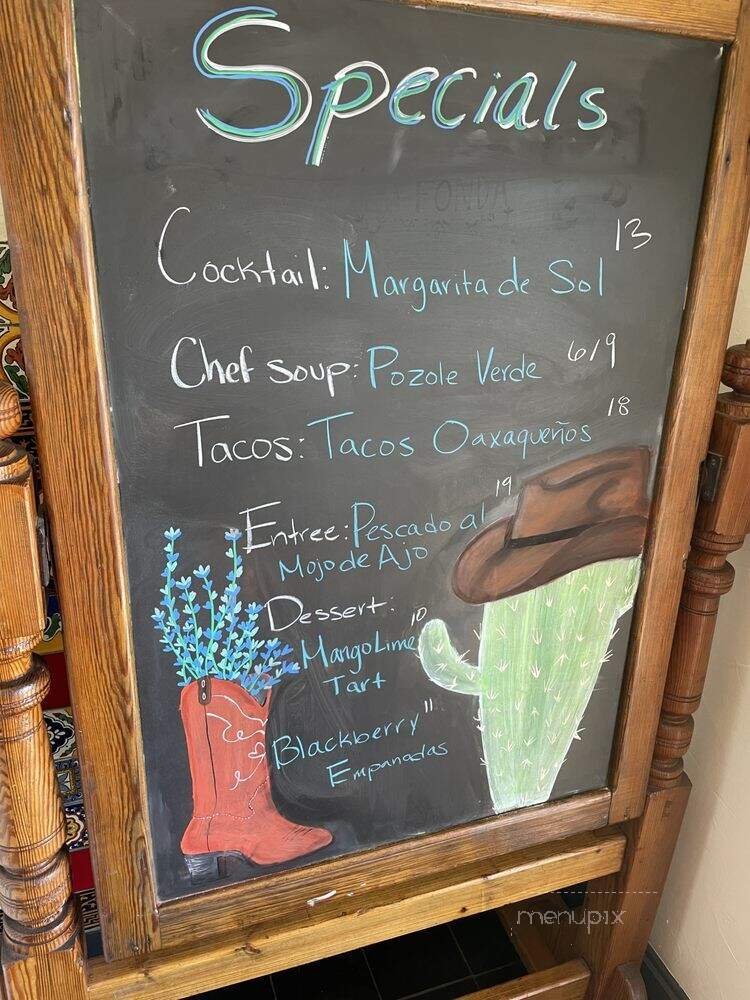 Specials
FONDA
Cocktail: Margarita de Sol 13
Chef soup: Pozole Verde 6/9
Tacos: Tacos Oaxaqueños 18
Entree: Pescado al 19
Mojo de Ajo
Dessert:
Mango Lime 10
Tart
Blackberry 11
Empanadas
menupix